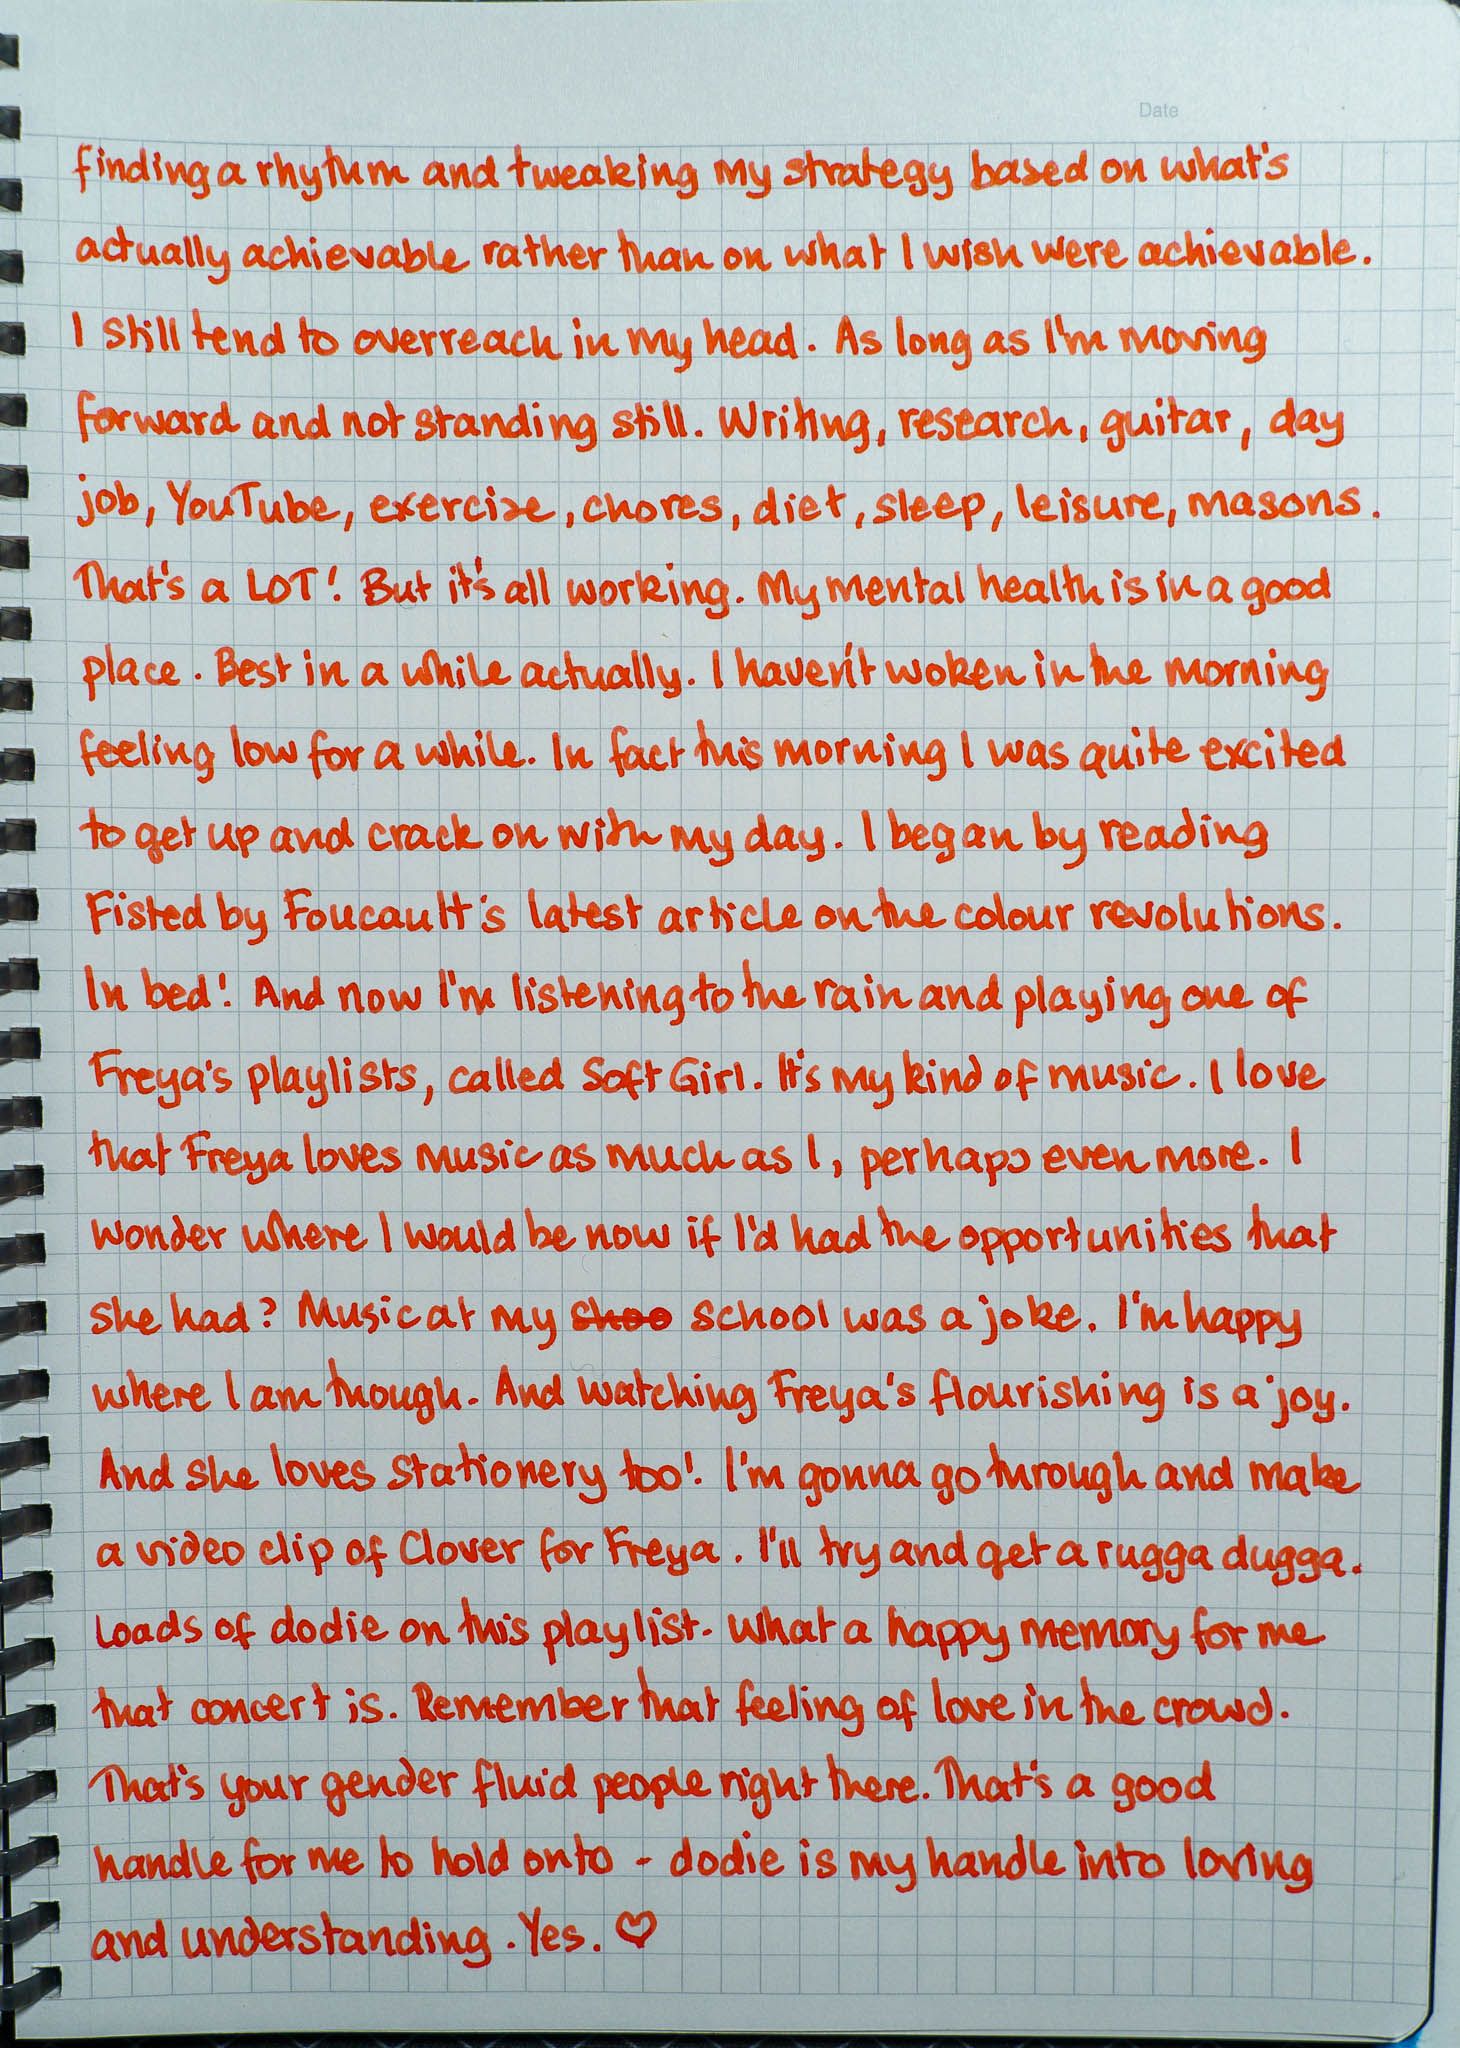 Date
finding a rhythm and tweaking my strategy based on what's
actually achievable rather than on what I wish were achievable.
I still tend to overreach in my head. As long as I'm moving
forward and not standing still. Writing, research, guitar, day
job, YouTube, exercise, chores, diet, sleep, leisure, masons.
That's a LOT! But it's all working. My mental health is in a good
place. Best in a while actually. I haven't woken in the morning
feeling low for a while. In fact this morning I was quite excited
to get up and crack on with my day. I began by reading
Fisted by Foucault's latest article on the colour revolutions.
In bed! And now I'm listening to the rain and playing one of
Freya's playlists, called Soft Girl. It's my kind of music. I love
that Freya loves music as much as I, perhaps even more. I
wonder where I would be now if I'd had the opportunities that
she had? Music at my shoo school was a joke. I'm happy
where I am though. And watching Freya's flourishing is a joy.
And she loves stationery too! I'm gonna go through and make
a video clip of Clover for Freya. I'll try and get a rugga dugga.
Loads of dodie on this playlist. What a happy memory for me
that concert is. Remember that feeling of love in the crowd.
That's your gender fluid people right there. That's a good
handle for me to hold onto - dodie is my handle into loving
and understanding. Yes. ♡